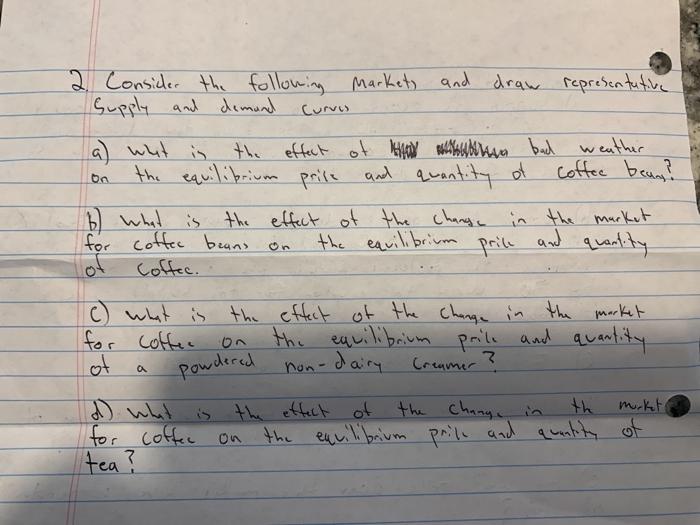 2. Consider the following Markets and draw representative
Supply and demand curves
a) what is the effect of bad weather
on the equilibrium price and quantity of coffee beans?
b) what is the effect of the change in the market
for coffee beans on the equilibrium price and quantity
of coffee.
c) what is the effect of the change in the market
for coffee on the equilibrium price and quantity
of a powdered non-dairy creamer?
d) what is the effect of the change in the market
for coffee on the equilibrium price and quantity of
tea?